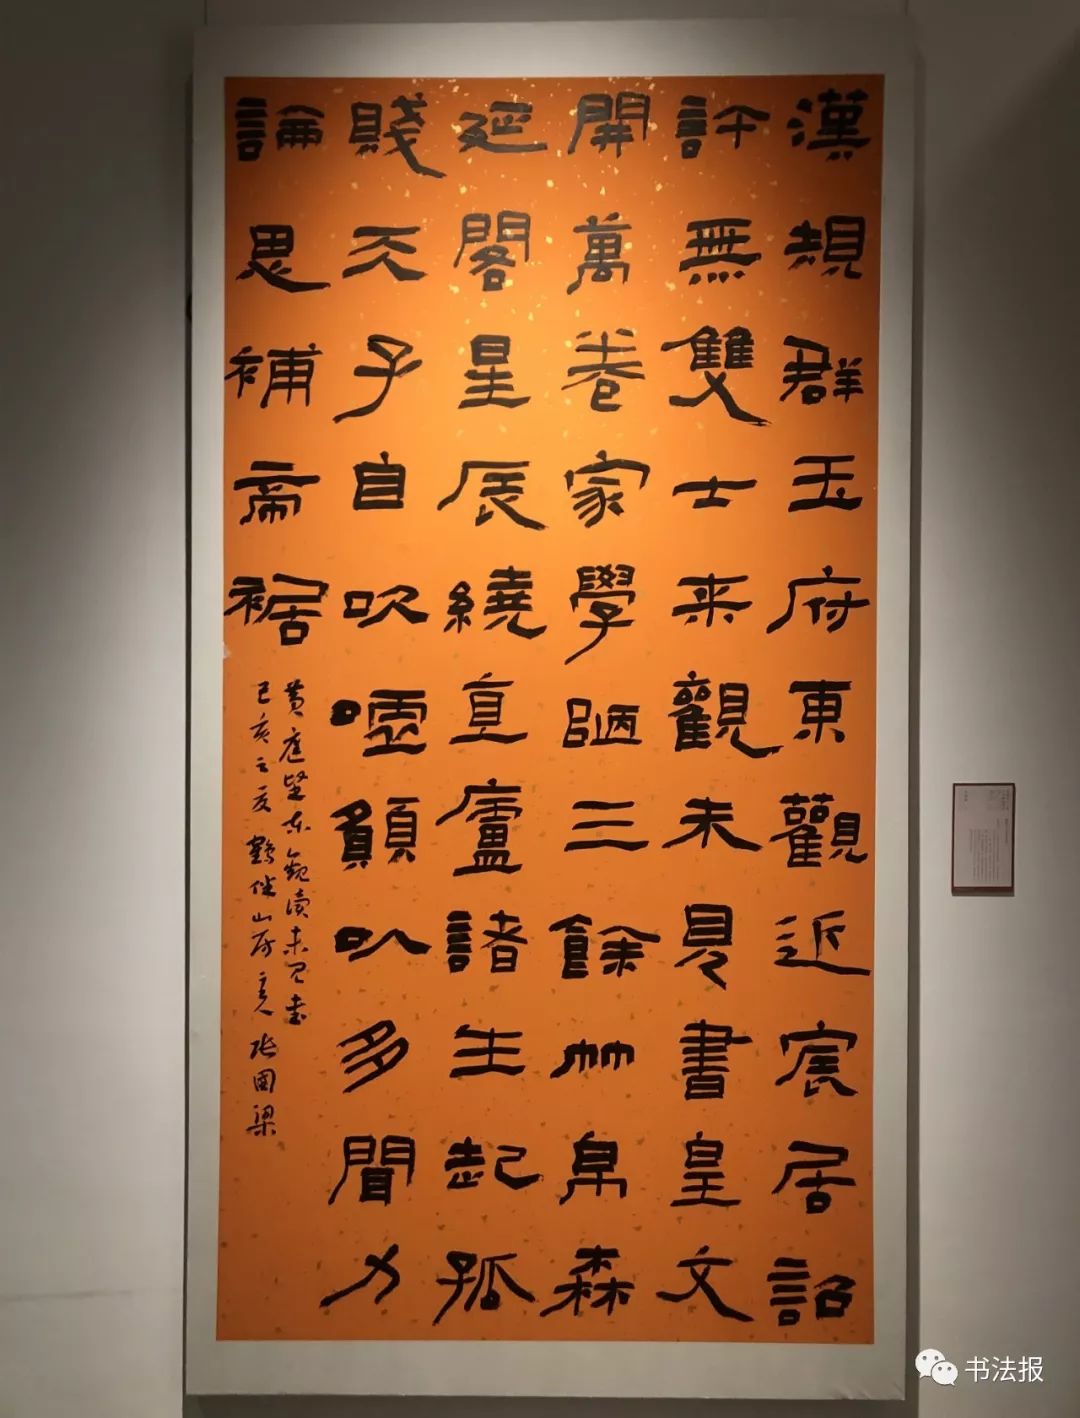 漢規群玉府東觀近宸居詔
許無雙士来觀未見書皇文
開萬卷家學陋三餘竹帛森
延閣星辰繞直廬諸生起孤
賤天子自吹噓願以多聞力
論思補帝裾
黄庭堅东觀讀未見書
己亥之夏鶴伴山房主人张國梁
书法报